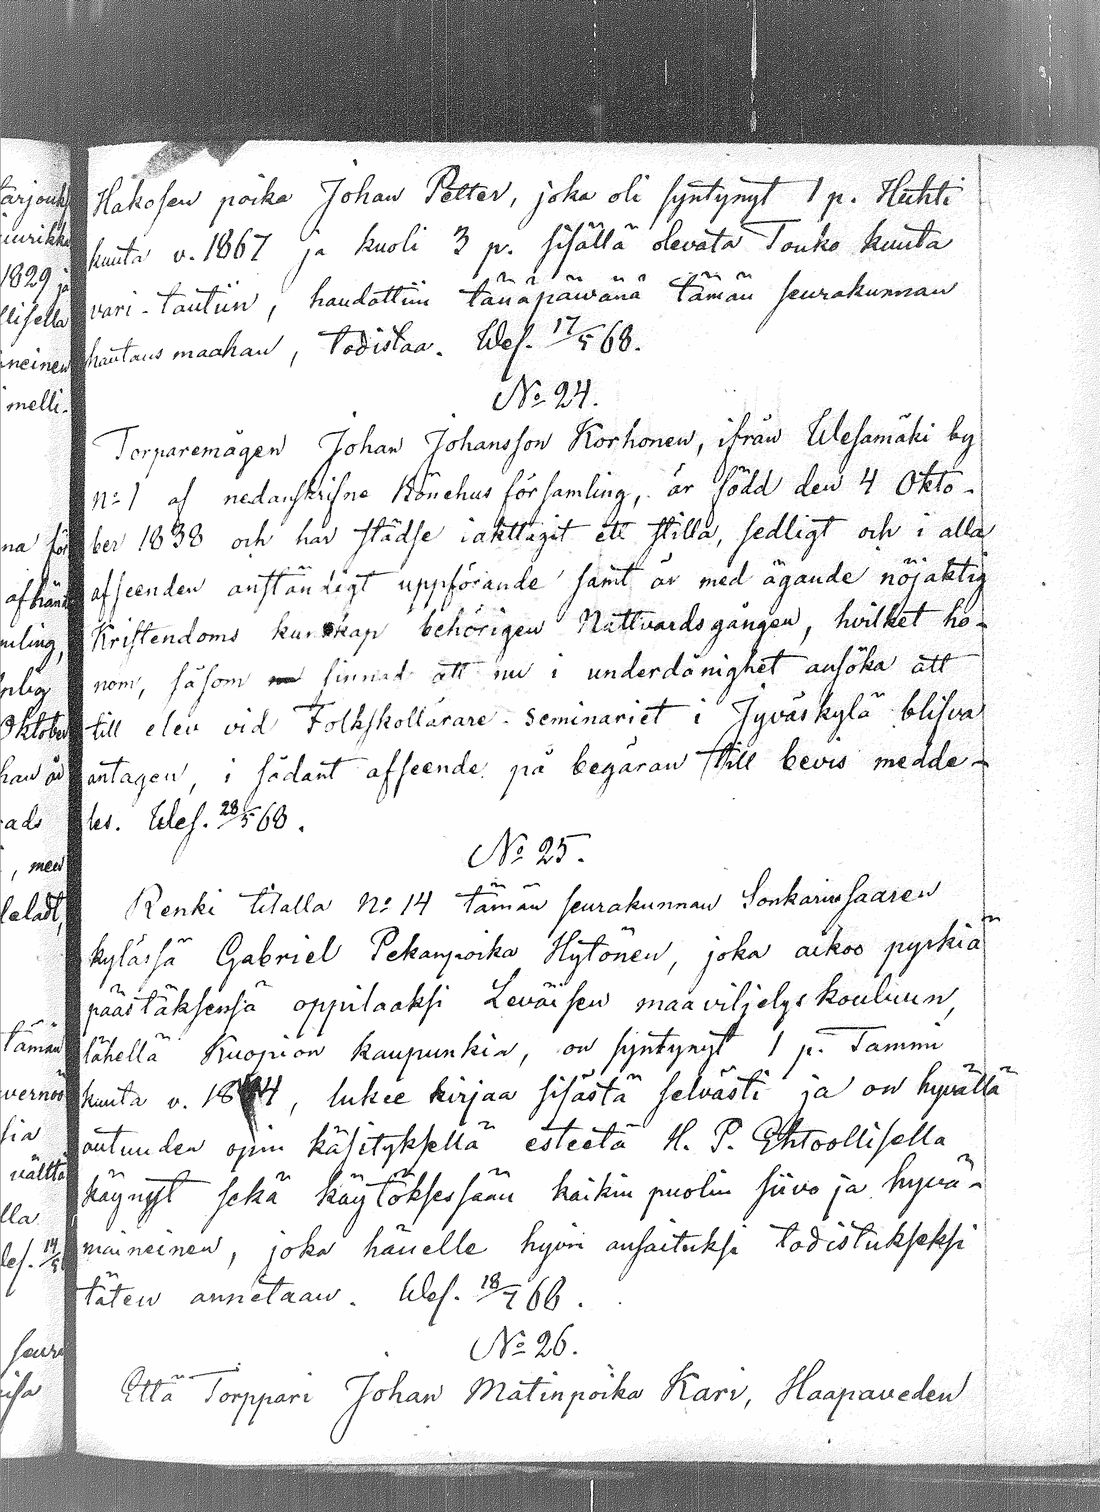 Hakosen poika Johan Petter, joka oli syntynyt 1 p. Huhti
kuuta v. 1867 ja kuoli 3 p. sisällä olevata Touko kuuta
vari-tautiin, haudattiin tänäpäwänä tämän seurakunnan
hautausmaahan, todistaa. Wes. 17/5 68.
No 24.
Torparemågen Johan Johansson Korhonen, ifrån Wesamäki by
No 1 af nedanskrifne församling, är född den 4 Okto-
ber 1838 och har städse iakttagit ett stilla, sedligt och i alla
afseenden anständigt uppförande samt är med ägande nöjaktig
Kristendoms kunskap behörigen Nattvardsgången, hvilket ho-
nom, såsom sinnad att nu i underdånighet ansöka att
till elev vid Folkskollärare-Seminariet i Jyväskylä blifva
antagen, i sådant afseende på begäran till bevis medde-
les. Wes. 28/5 68.
No 25.
Renki tilalla No 14 tämän seurakunnan Sonkarinsaaren
kylässä Gabriel Pekanpoika Hytönen, joka aikoo pyrkiä
päästäksensä oppilaaksi Leväisen maaviljelyskouluun,
lähellä Kuopion kaupunkia, on syntynyt 1 p. Tammi
kuuta v. 1844, lukee kirjaa sisästä selvästi ja on hyvällä
autuuden opin käsityksellä esteetä H. P. Ehtoollisella
käynyt sekä käytöksessään kaikin puolin siivo ja hyvä-
maineinen, joka hänelle hyvin ansaituksi todistukseksi
täten annetaan. Wes. 18/7 68.
No 26.
Että Torppari Johan Matinpoika Kari, Haapaveden